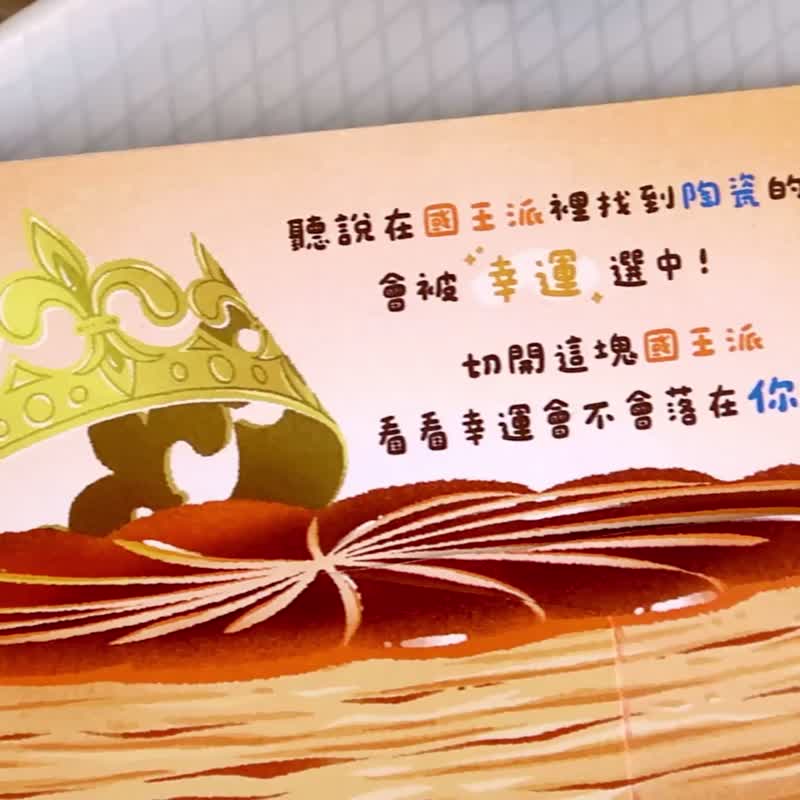 聽說在國王派裡找到陶瓷的
會被幸運選中！
切開這塊國王派
看看幸運會不會落在你